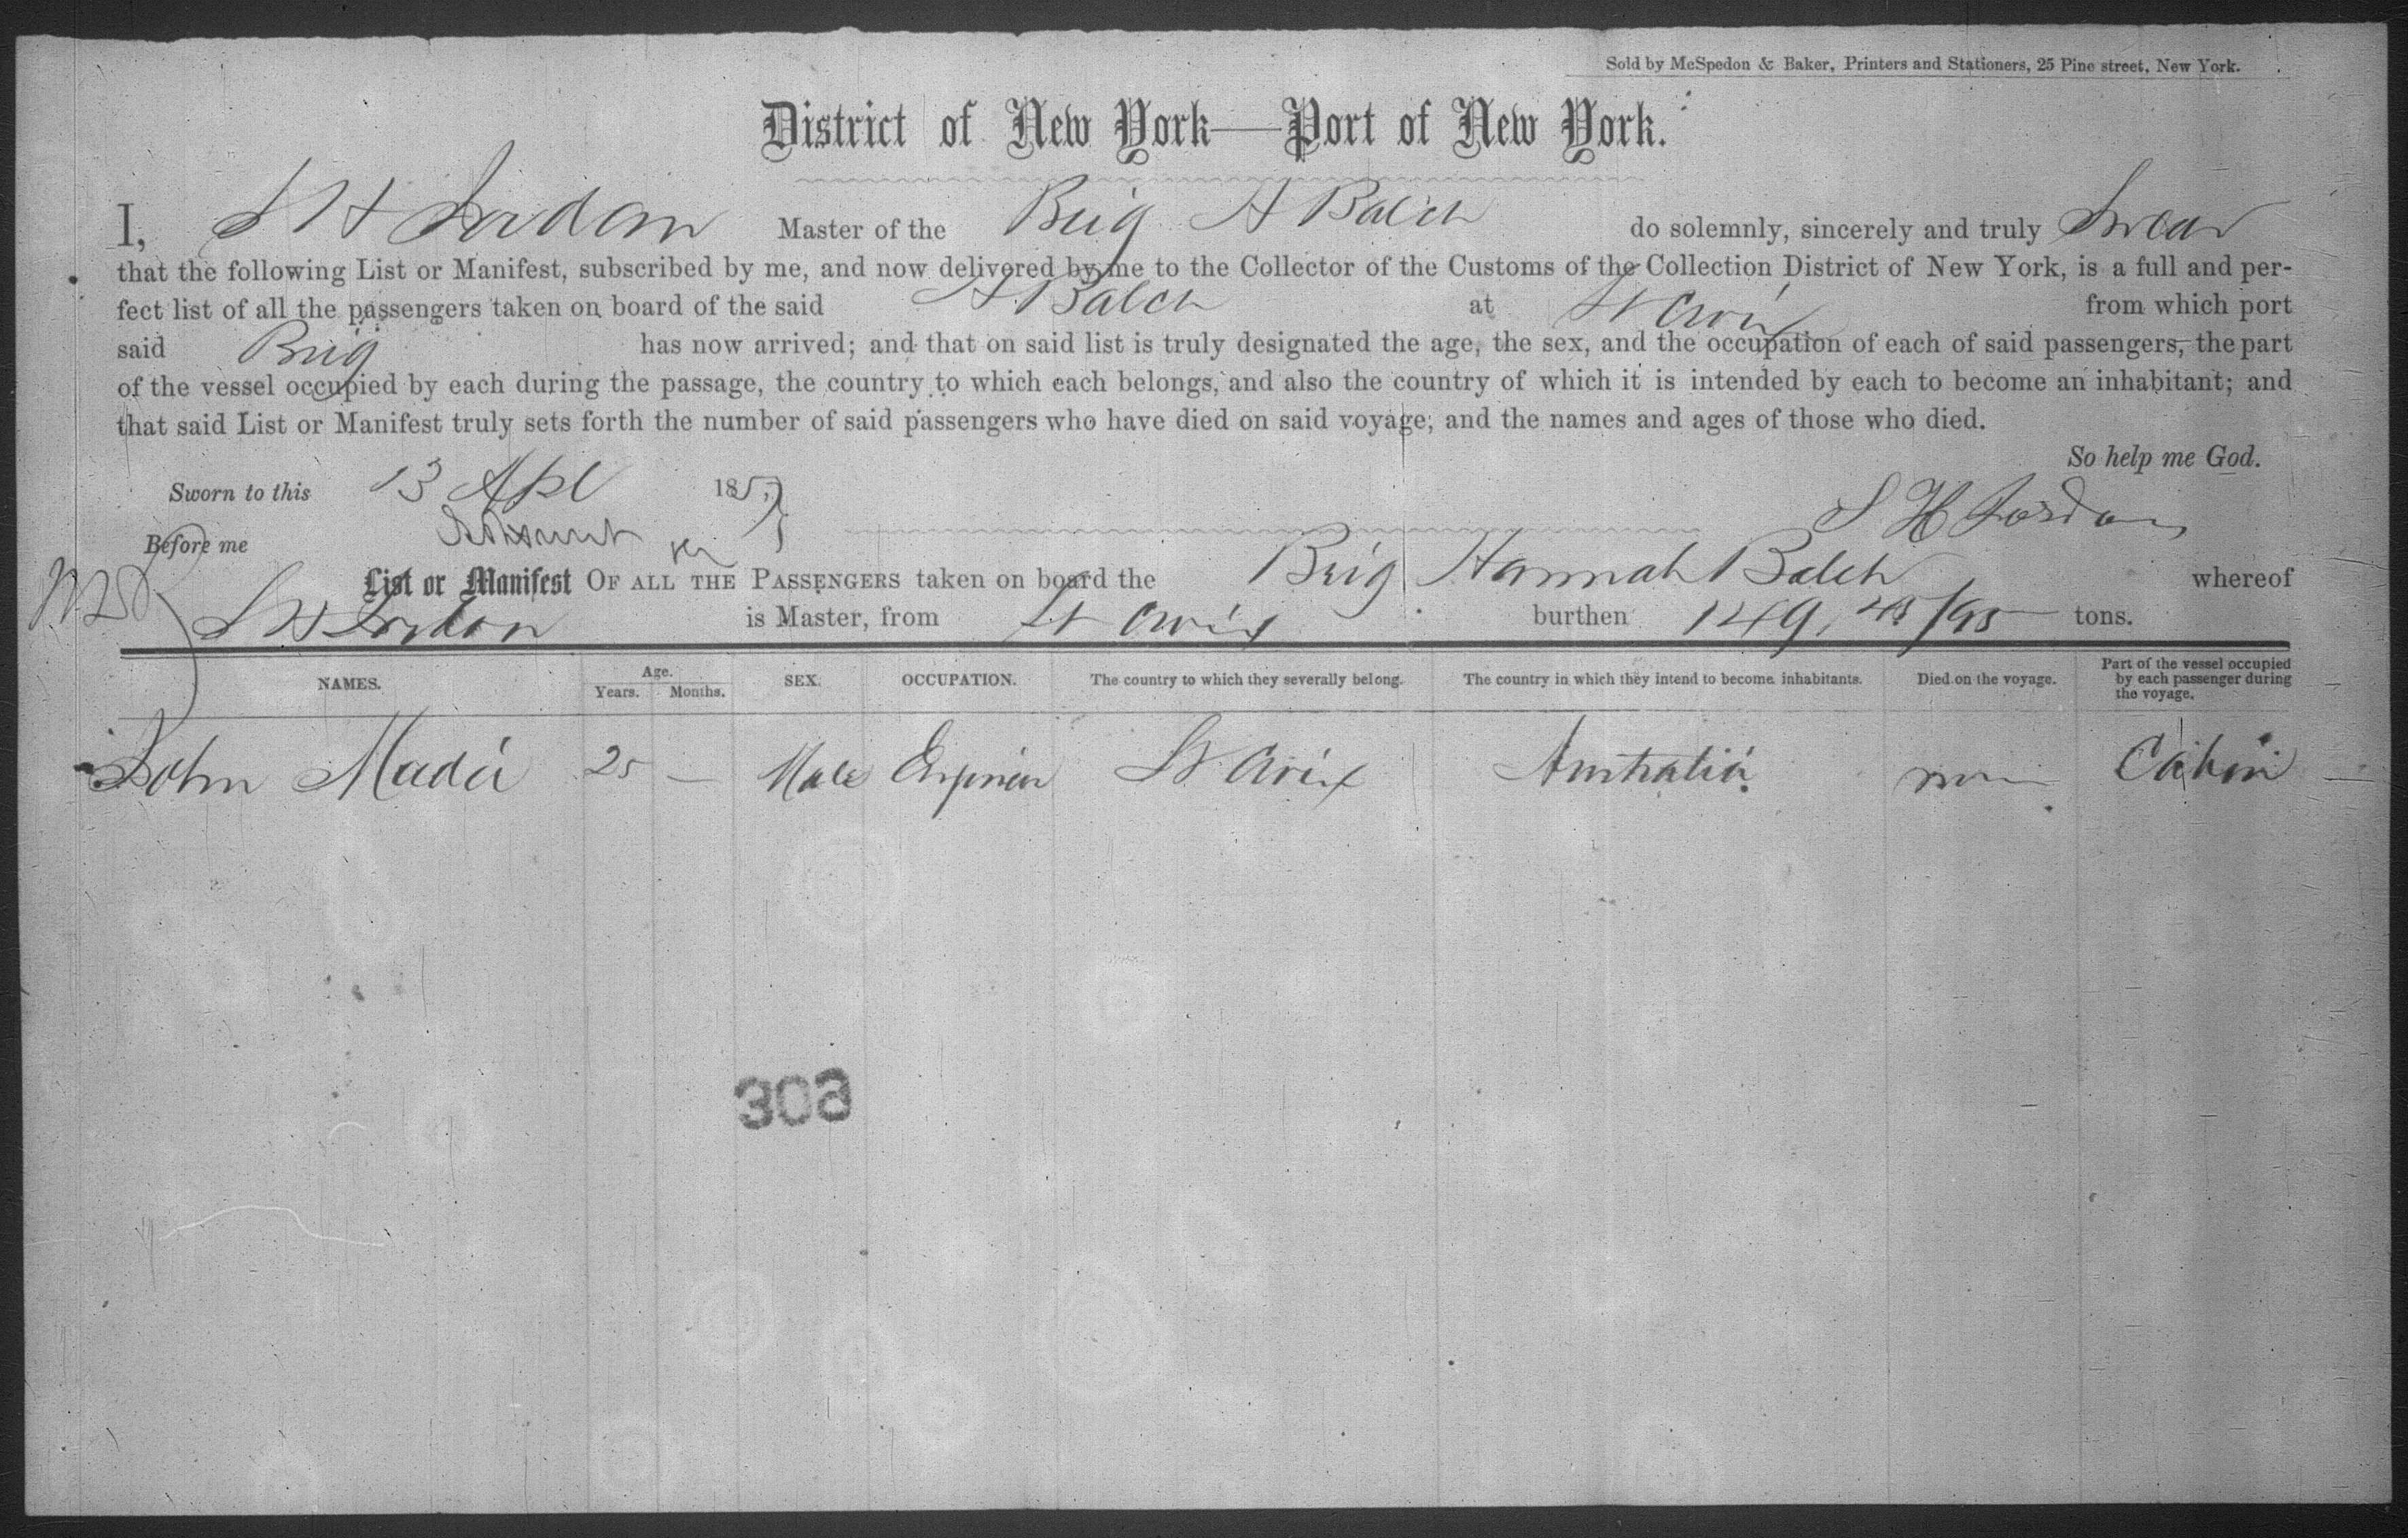 Sold by McSpedon & Baker, Printers and Stationers, 25 Pine street, New York.
District of New York—Port of New York.
I, S H Jordan Master of the Brig H Balch do solemnly, sincerely and truly Swear
that the following List or Manifest, subscribed by me, and now delivered by me to the Collector of the Customs of the Collection District of New York, is a full and per-
fect list of all the passengers taken on board of the said H Balch at St Croix from which port
said Brig has now arrived; and that on said list is truly designated the age, the sex, and the occupation of each of said passengers, the part
of the vessel occupied by each during the passage, the country to which each belongs, and also the country of which it is intended by each to become an inhabitant; and
that said List or Manifest truly sets forth the number of said passengers who have died on said voyage, and the names and ages of those who died.
So help me God.
Sworn to this 13 Apl 185 S H Jordan
Before me
List or Manifest OF ALL THE PASSENGERS taken on board the Brig Hannah Balch whereof
S H Jordan is Master, from St Croix burthen 149, /95 tons.
NAMES. Age. Years. Months. SEX. OCCUPATION. The country to which they severally belong. The country in which they intend to become inhabitants. Died on the voyage. Part of the vessel occupied by each passenger during the voyage.
John 25 — Male Engineer St Croix Australia Cabin